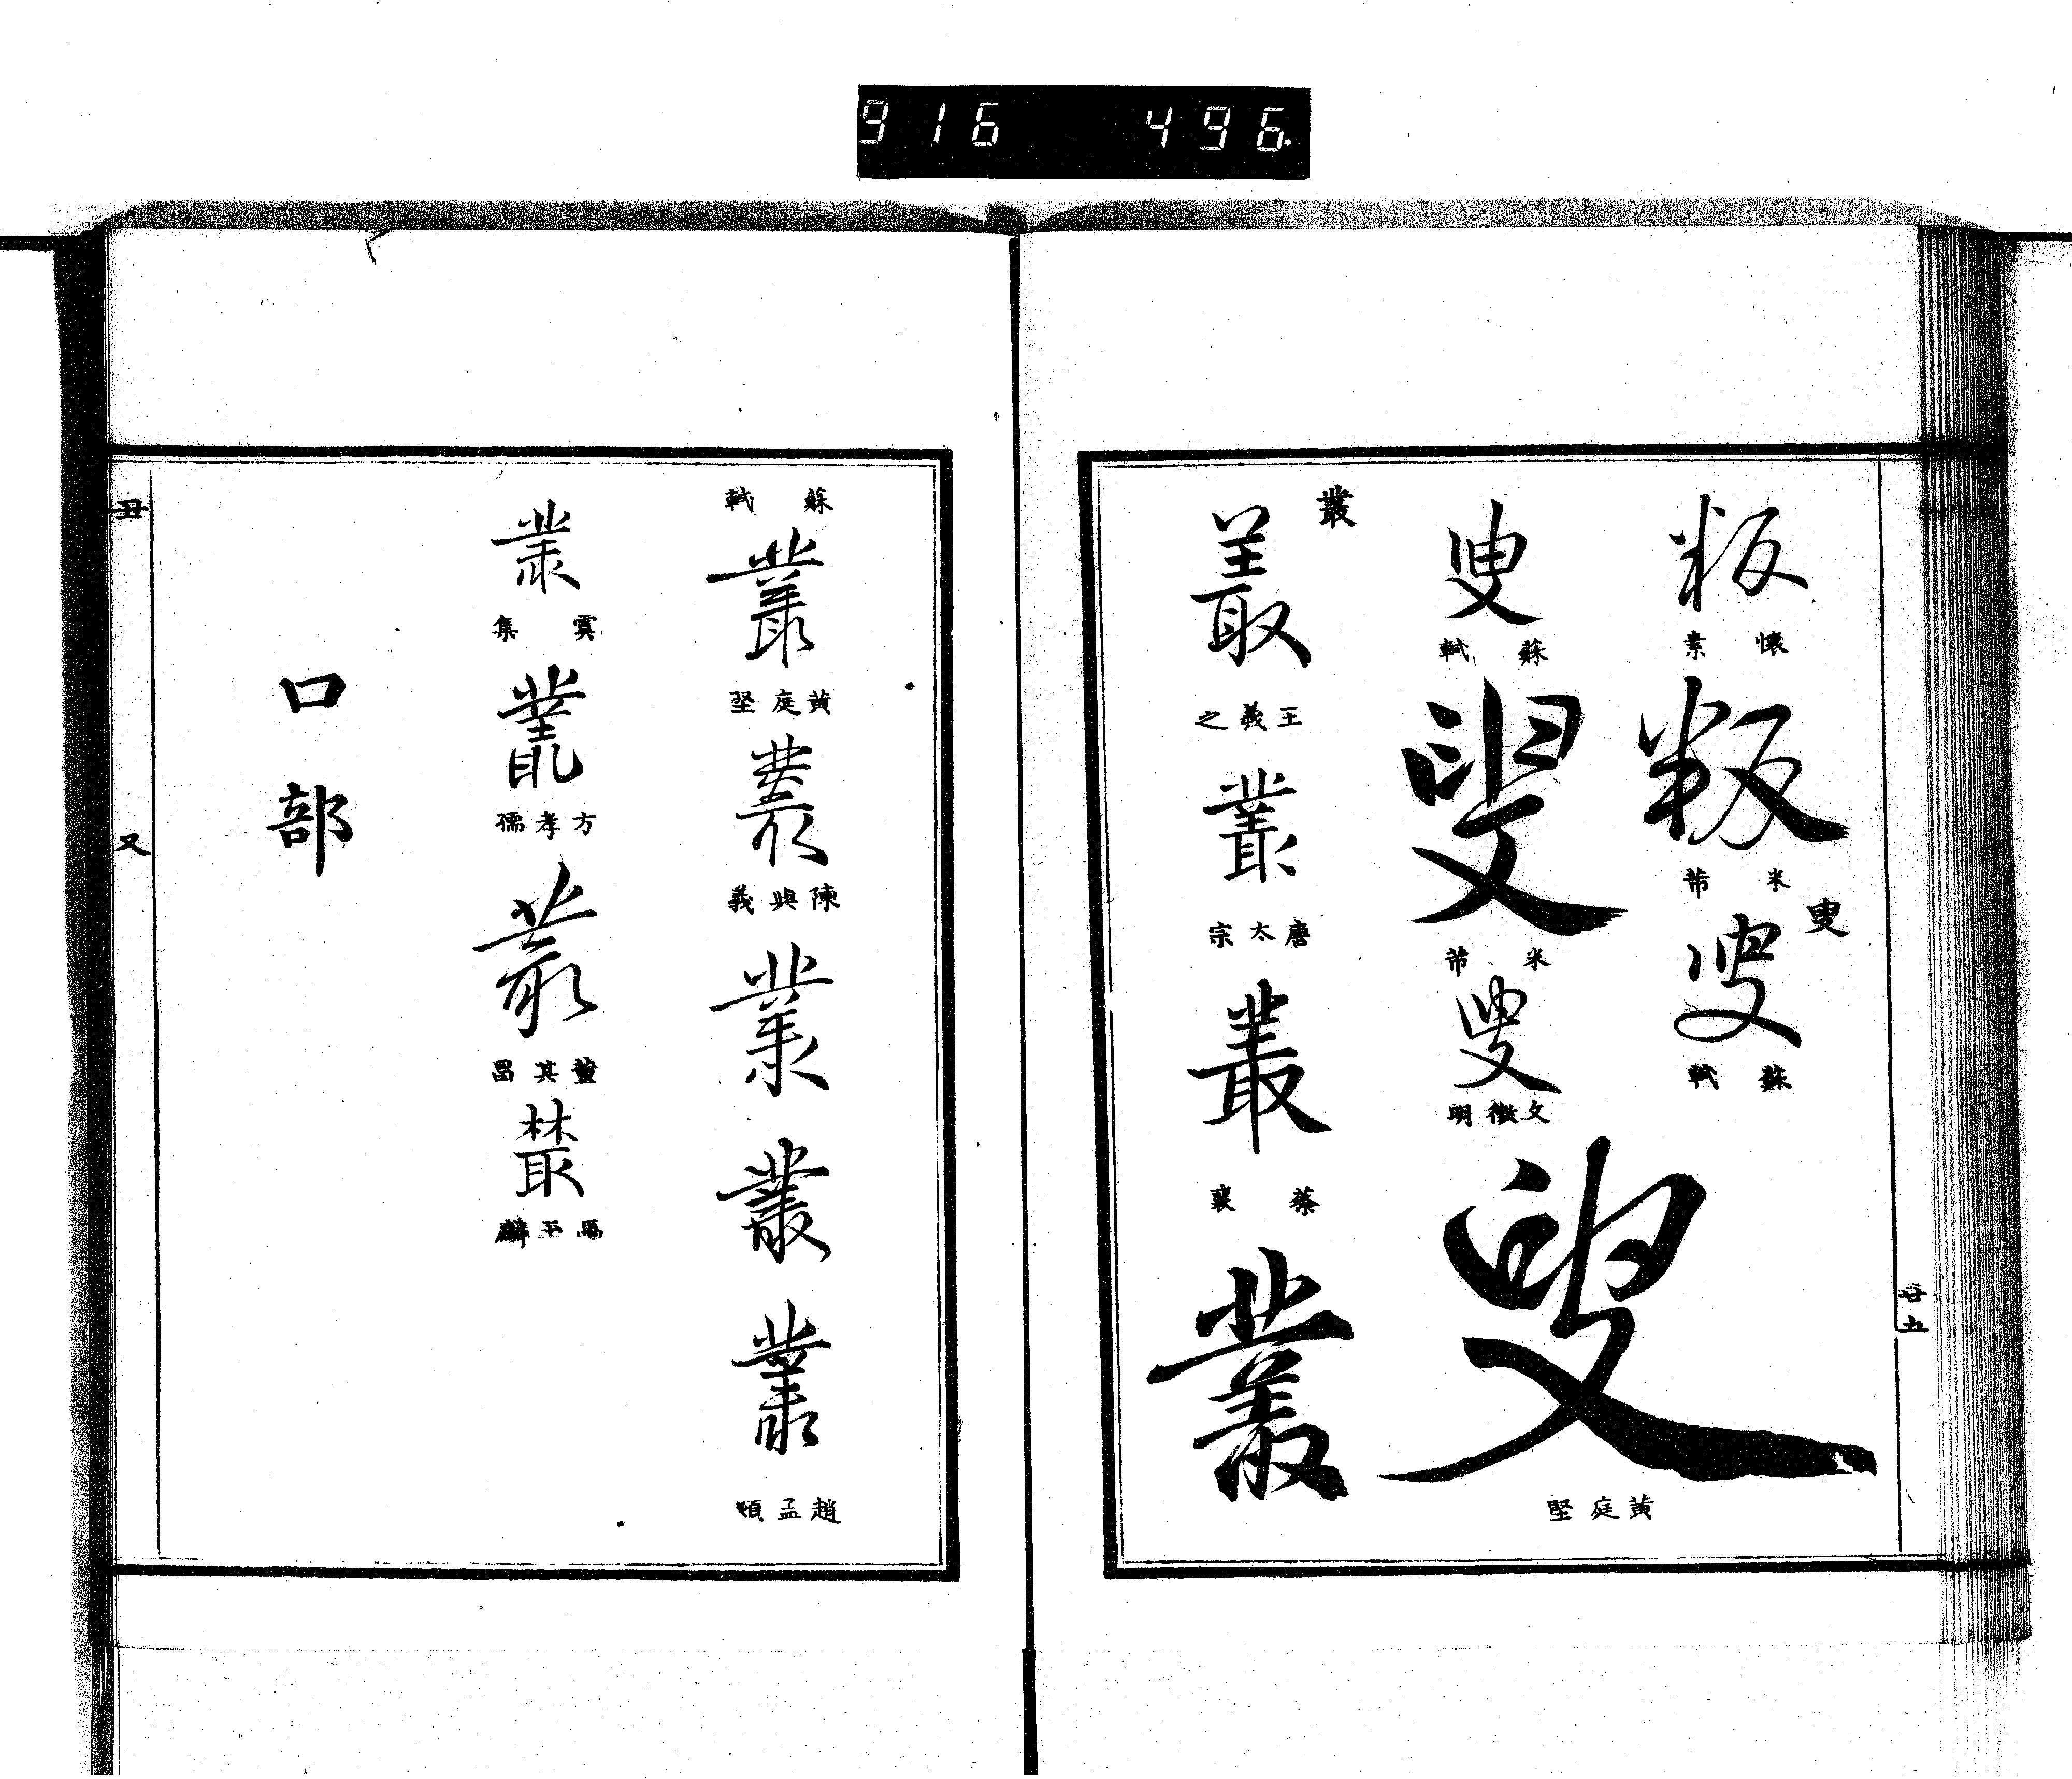 916 496.
廿五
叛 懷素 叛 米芾
叟
叟 蘇軾
叟 蘇軾 叟 米芾 叟 文徵明 叟 黃庭堅
叢
叢 王羲之 叢 唐太宗 叢 蔡襄 叢
蘇軾 叢 黃庭堅 叢 陳與義 叢 叢 叢 趙孟頫
叢 虞集 叢 方孝孺 叢 董其昌 叢
口部
丑 又